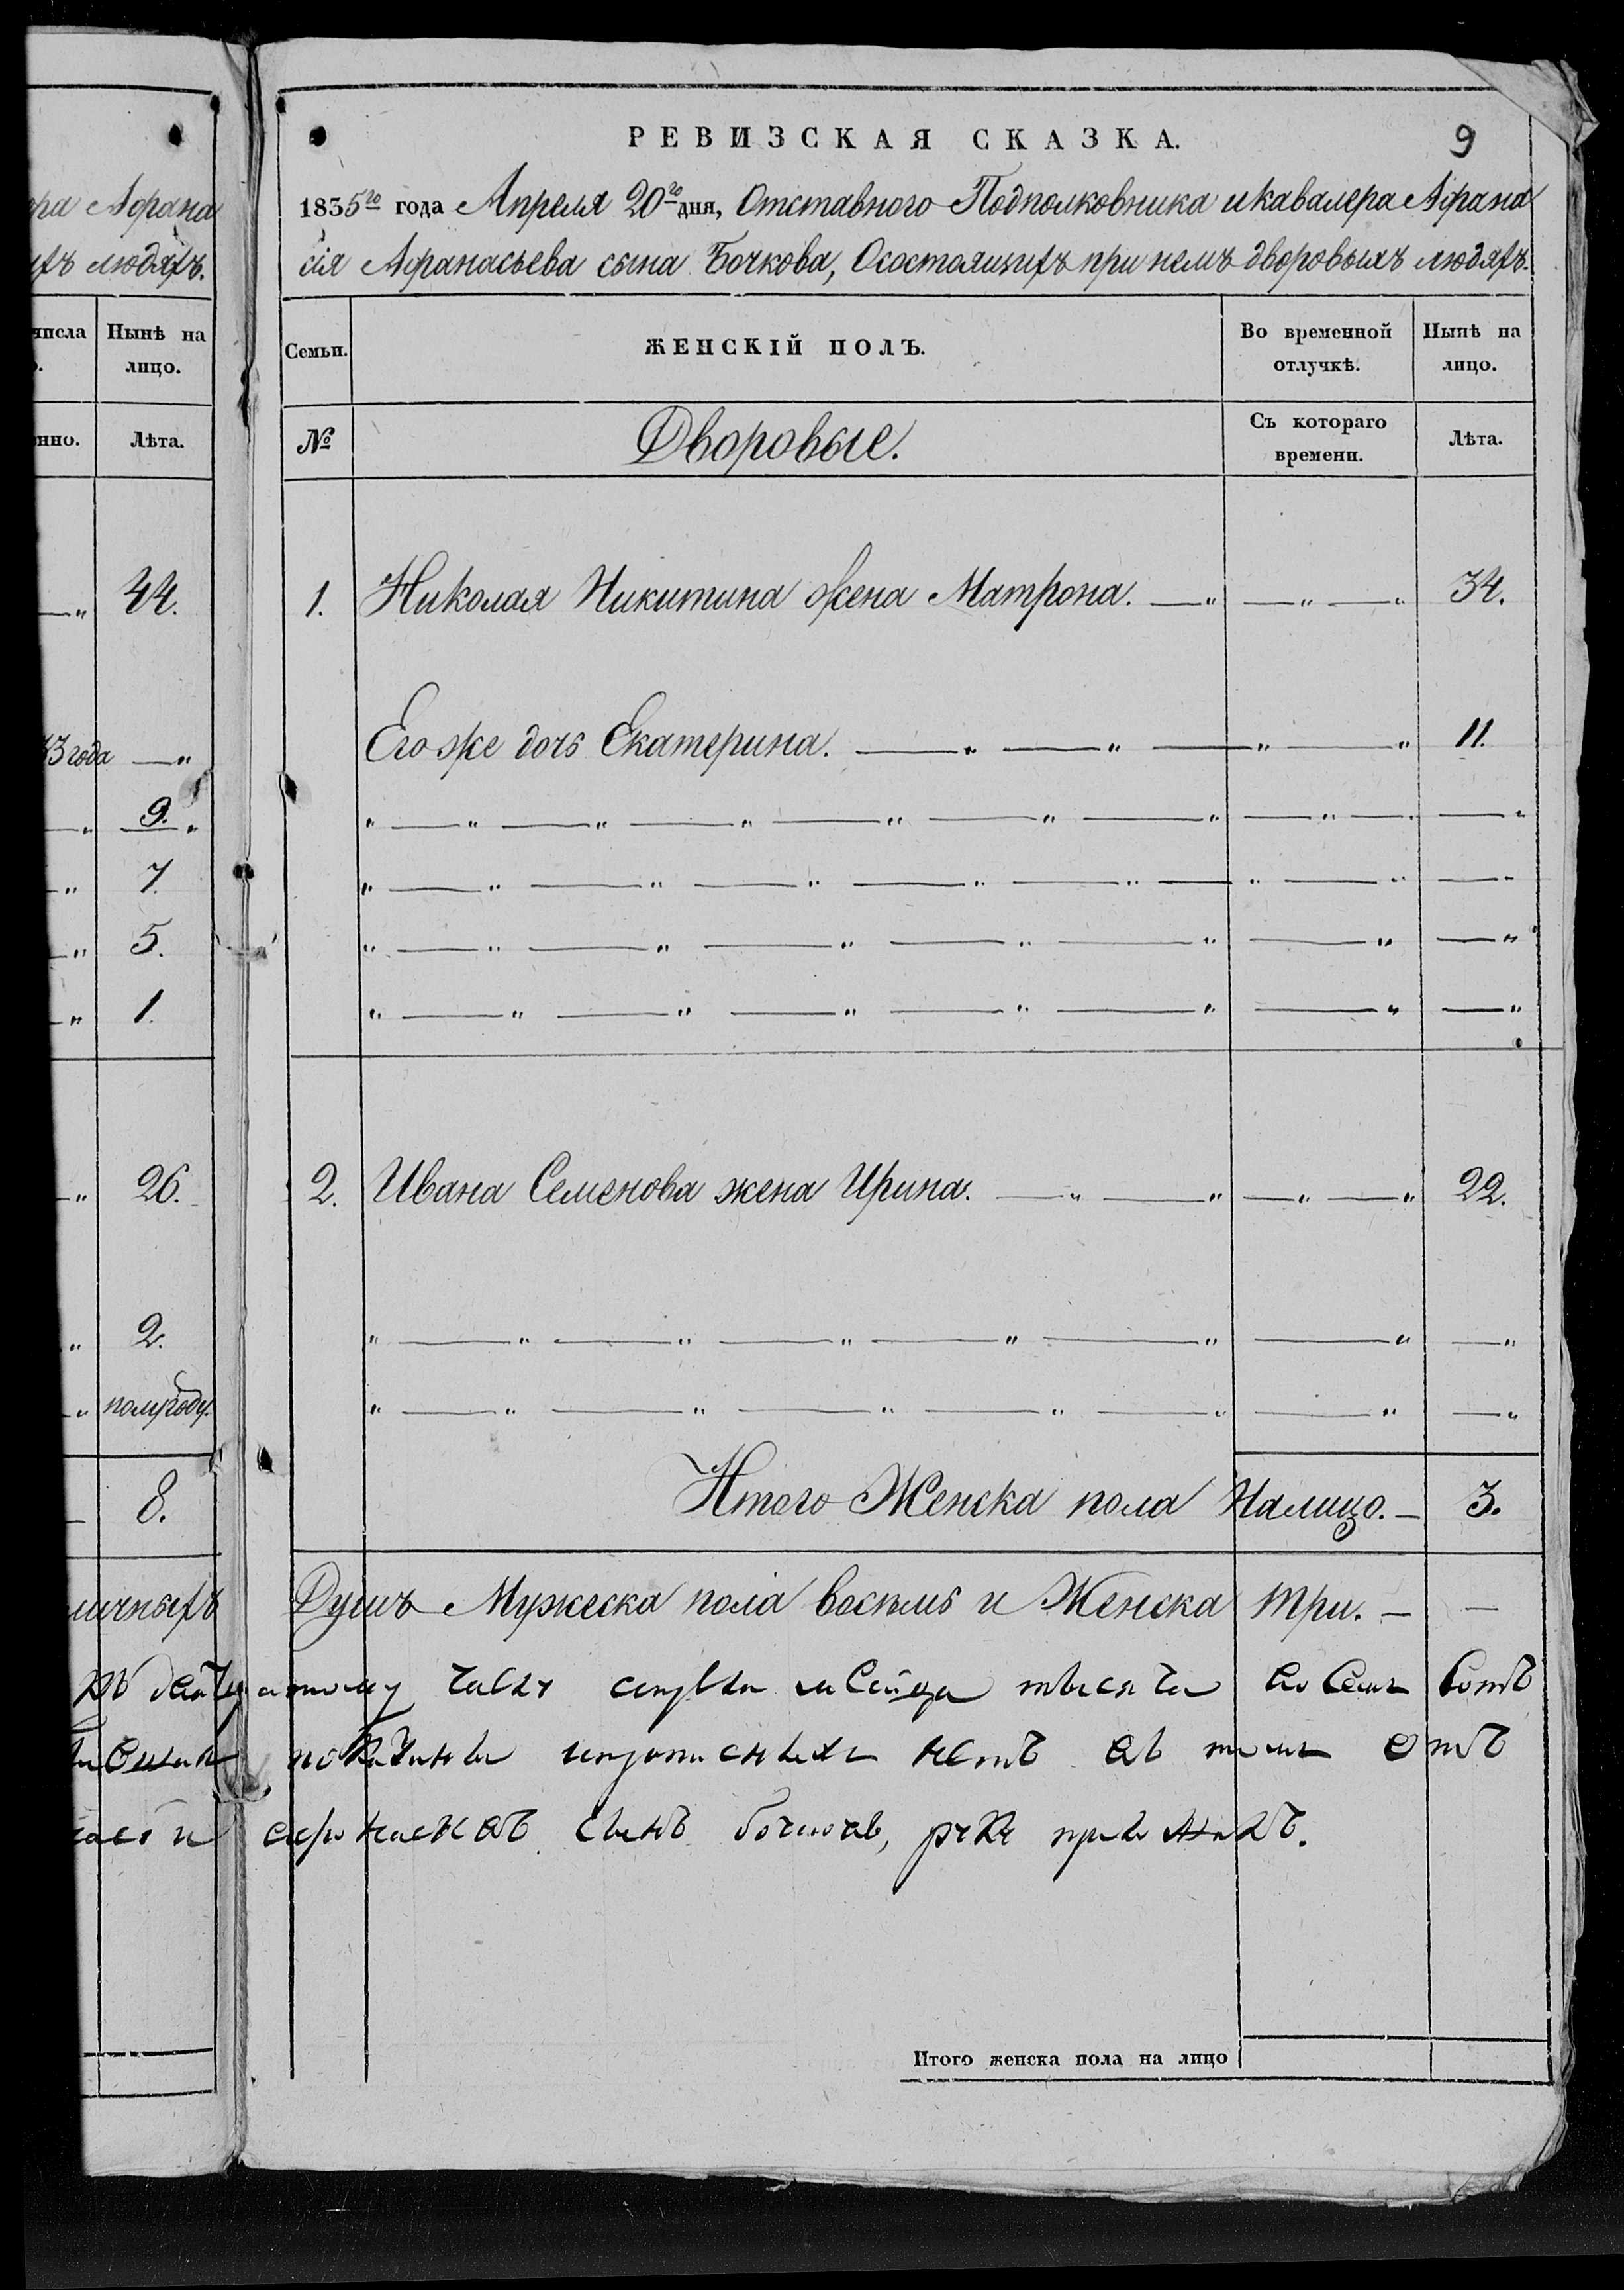 ора Афана
ихъ людяхъ.
числа Нынѣ на
лицо.
Лѣта.
44.
33 года
9.
7.
5.
1.
26.
2.
полугоду.
8.
9
РЕВИЗСКАЯ СКАЗКА.
1835го года Апреля 20го дня, Отставного Подполковника и кавалера Афана
сія Афанасьева сына Бочкова, О состоящихъ при немъ дворовыхъ людяхъ.
Семьи. ЖЕНСКІЙ ПОЛЪ. Во временной отлучкѣ. Нынѣ на лицо.
№ Дворовые. Съ котораго времени. Лѣта.
1. Николая Никитина жена Матрона. 34.
Его же дочь Екатерина. 11.
2. Ивана Семенова жена Ирина. 22.
Итого Женска пола Налицо. 3.
Душъ Мужеска пола восемь и Женска три.
тысяча
нетъ въ томъ
сынъ
Итого женска пола на лицо